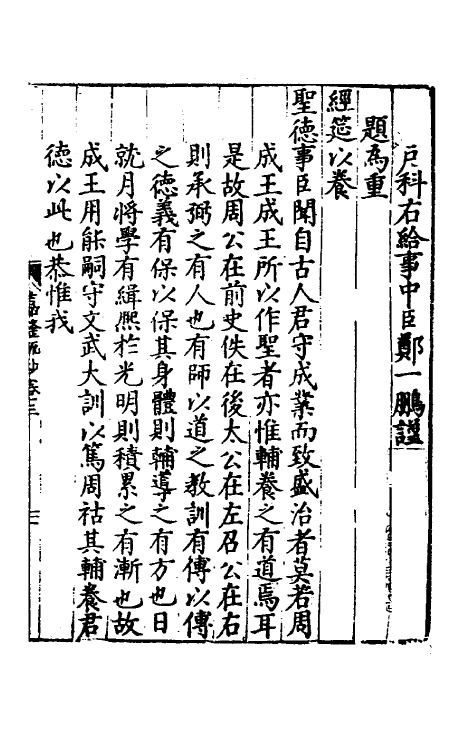 戶科右給事中臣鄭一鵬謹
題為重
經筵以養
聖德事臣聞自古人君守成業而致盛治者莫若周
成王成王所以作聖者亦惟輔養之有道焉耳
是故周公在前史佚在後太公在左召公在右
則承弼之有人也有師以道之教訓有傅以傳
之德義有保以保其身體則輔導之有方也日
就月將學有緝熙於光明則積累之有漸也故
成王用能嗣守文武大訓以篤周祜其輔養君
德以此也恭惟我
嘉隆疏抄卷三